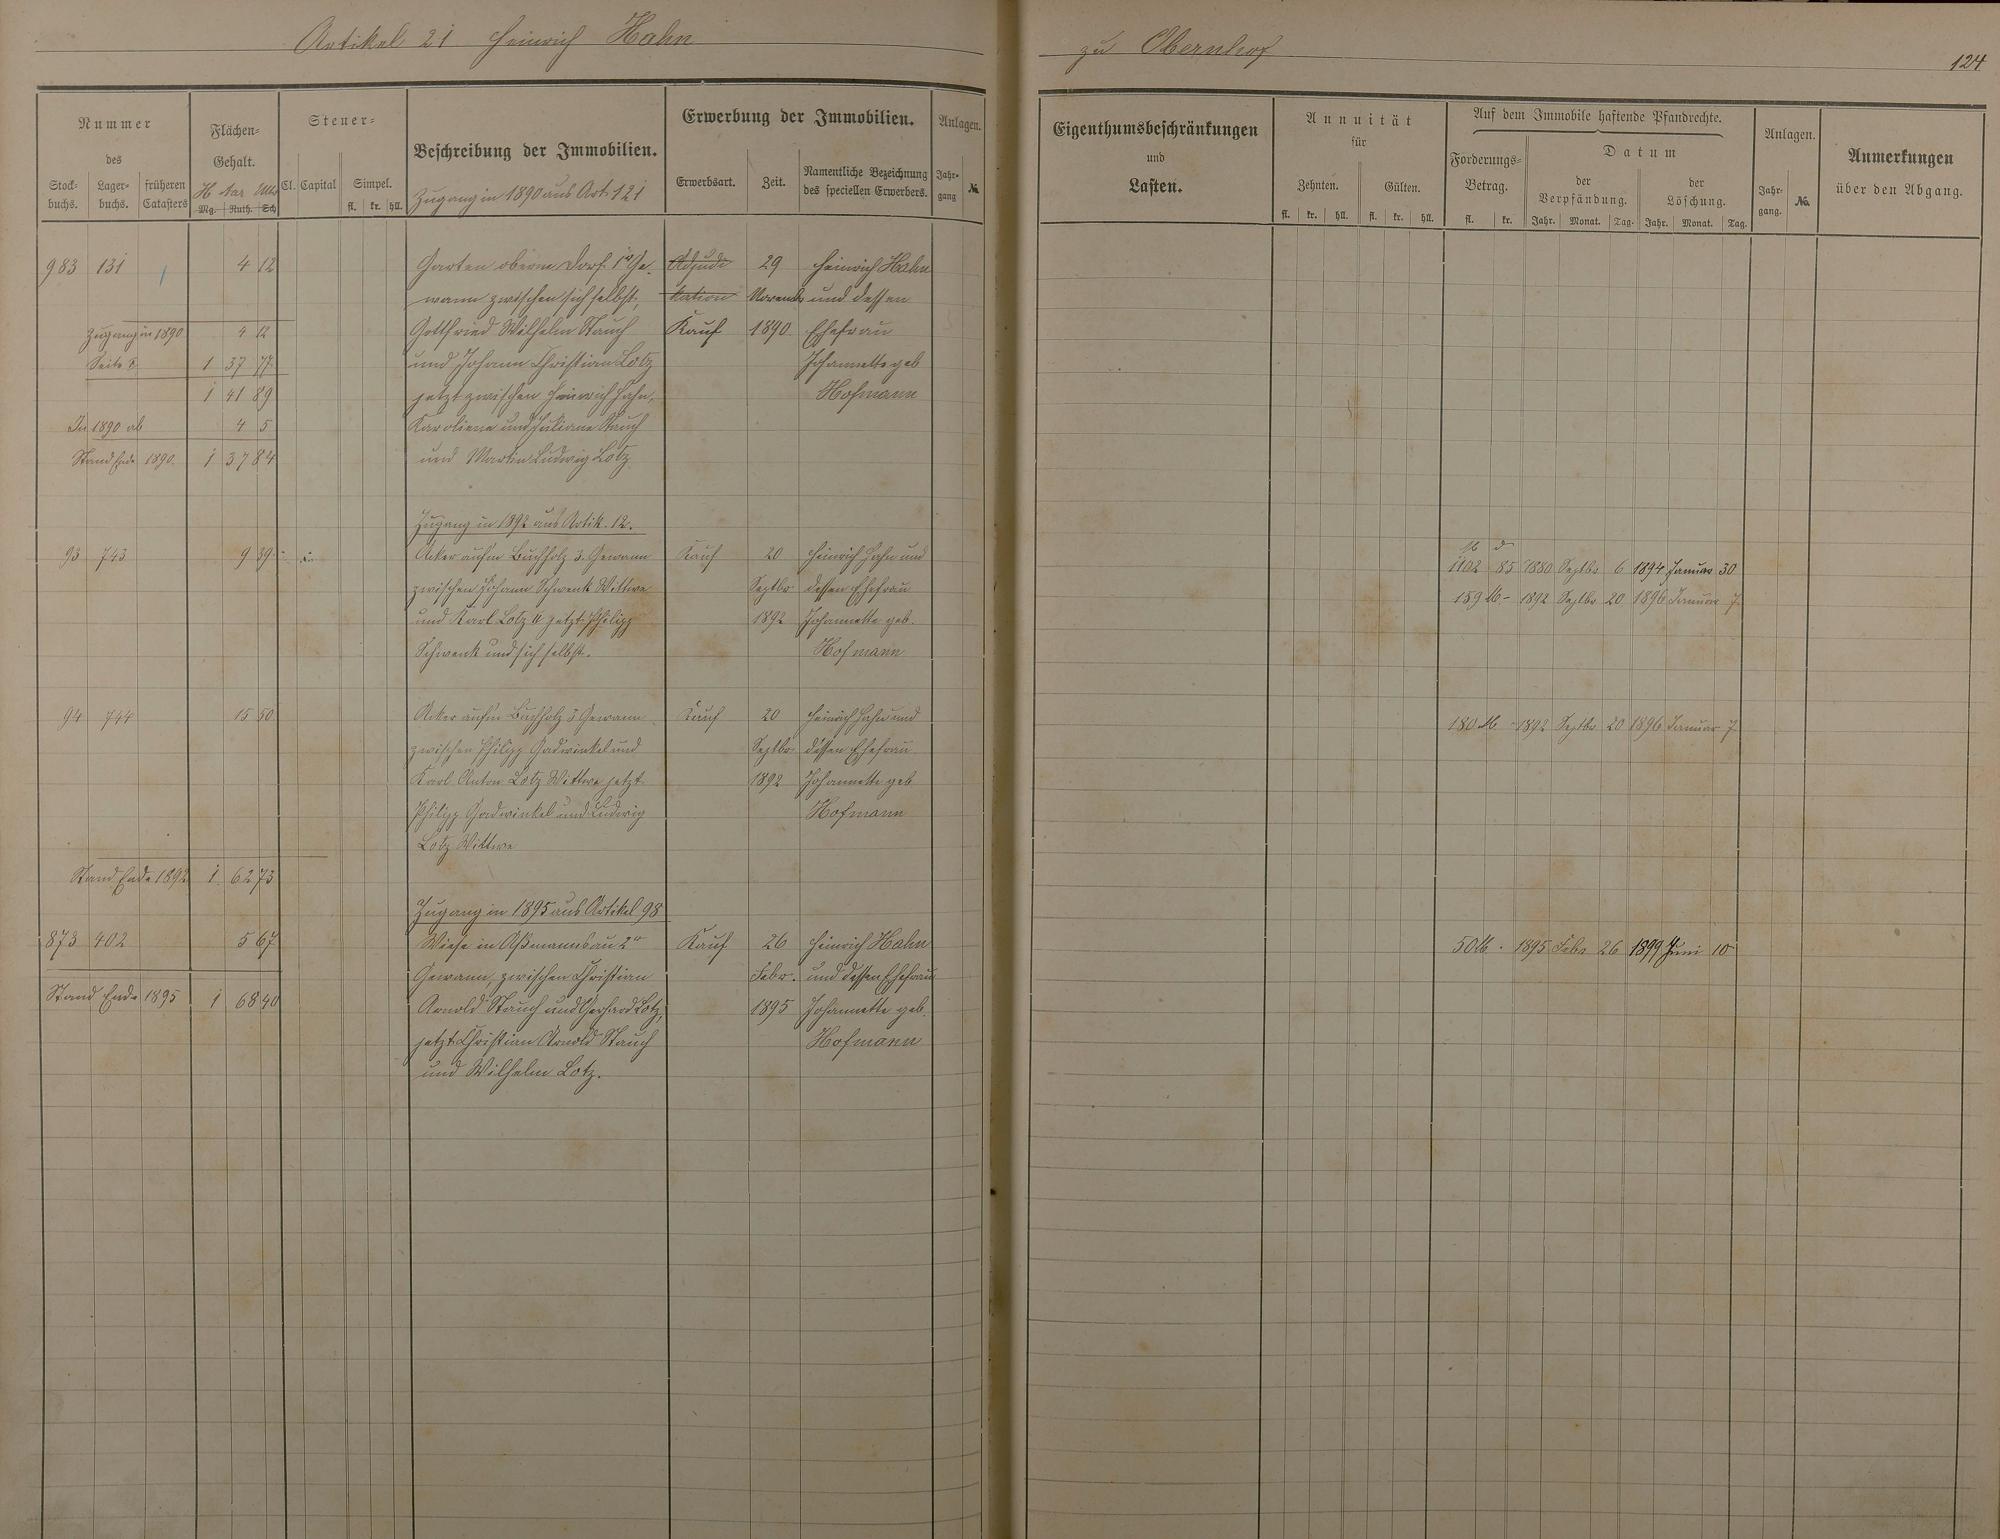 Artikel 21 Heinrich Hahn
zu Obernhof
124
Nummer
des
Stock-
buchs.
Lager-
buchs.
früheren
Catasters
Flächen-
Gehalt.
H Aar
Mg. Ruth. Sch
Steuer-
Cl. Capital
Simpel.
fl. kr. hll.
Beschreibung der Immobilien.
Zugang in 1890 aus Art. 121
Erwerbung der Immobilien.
Erwerbsart.
Zeit.
Namentliche Bezeichnung
des speciellen Erwerbers.
Anlagen.
Jahr-
gang
No.
Eigenthumsbeschränkungen
und
Lasten.
Annuität
für
Zehnten.
Gülten.
fl. kr. hll. fl. kr. hll.
Auf dem Immobile haftende Pfandrechte.
Forderungs-
Betrag.
fl. kr.
Datum
der
Verpfändung.
Jahr. Monat. Tag.
der
Löschung.
Jahr. Monat. Tag.
Anlagen.
Jahr-
gang.
No.
Anmerkungen
über den Abgang.
983 131 4 12 Garten oberm Dorf 1r Ge- Adjudi 29 Heinrich Hahn
wann zwischen sich selbst, kation Novemb. und dessen
Zugang in 1890 4 12 Gottfried Wilhelm Stauch Kauf 1890 Ehefrau
Seite 1 37 77 und Johann Christian Lotz Johannette geb
1 41 89 jetzt zwischen Heinrich Hahn, Hofmann
In 1890 ab 4 5 Karoliene und Juliane Stauch
Stand Ende 1890. 1 37 84 und Martin Ludwig Lotz
Zugang in 1892 aus Artik. 12.
93 743 9 39 Acker auf'm Buchholz 3. Gewann Kauf 20 Heinrich Hahn und
zwischen Johann Schwenk Wittwe Septbr dessen Ehefrau
und Karl Lotz jetzt Philipp 1892 Johannette geb.
Schwenk und sich selbst. Hofmann
1102 85 1880 Septbr 6 1894 Januar 30
159 M - 1892 Septbr. 20 1896 Januar 7
94 744 15 50 Acker auf'm Buchholz 3 Gewann Kauf 20 Heinrich Hahn und
zwischen Philipp Gadwinkel und Septbr. dessen Ehefrau
Karl Anton Lotz Wittwe jetzt 1892 Johannette geb
Philipp Gadwinkel und Ludwig Hofmann
Lotz Wittwe
180 M - 1892 Septbr. 20 1896 Januar 7
Stand Ende 1892 1 62 73
Zugang in 1895 aus Artikel 98
873 402 5 67 Wiese in Aßmannsau 2r Kauf 26 Heinrich Hahn
Gewann, zwischen Christian Febr. und dessen Ehefrau
Stand Ende 1895 1 68 40 Arnold Stauch und Gerhard Lotz, 1895 Johannette geb.
jetzt Christian Arnold Stauch Hofmann
und Wilhelm Lotz.
50 M. 1895 Febr 26 1899 Juni 10